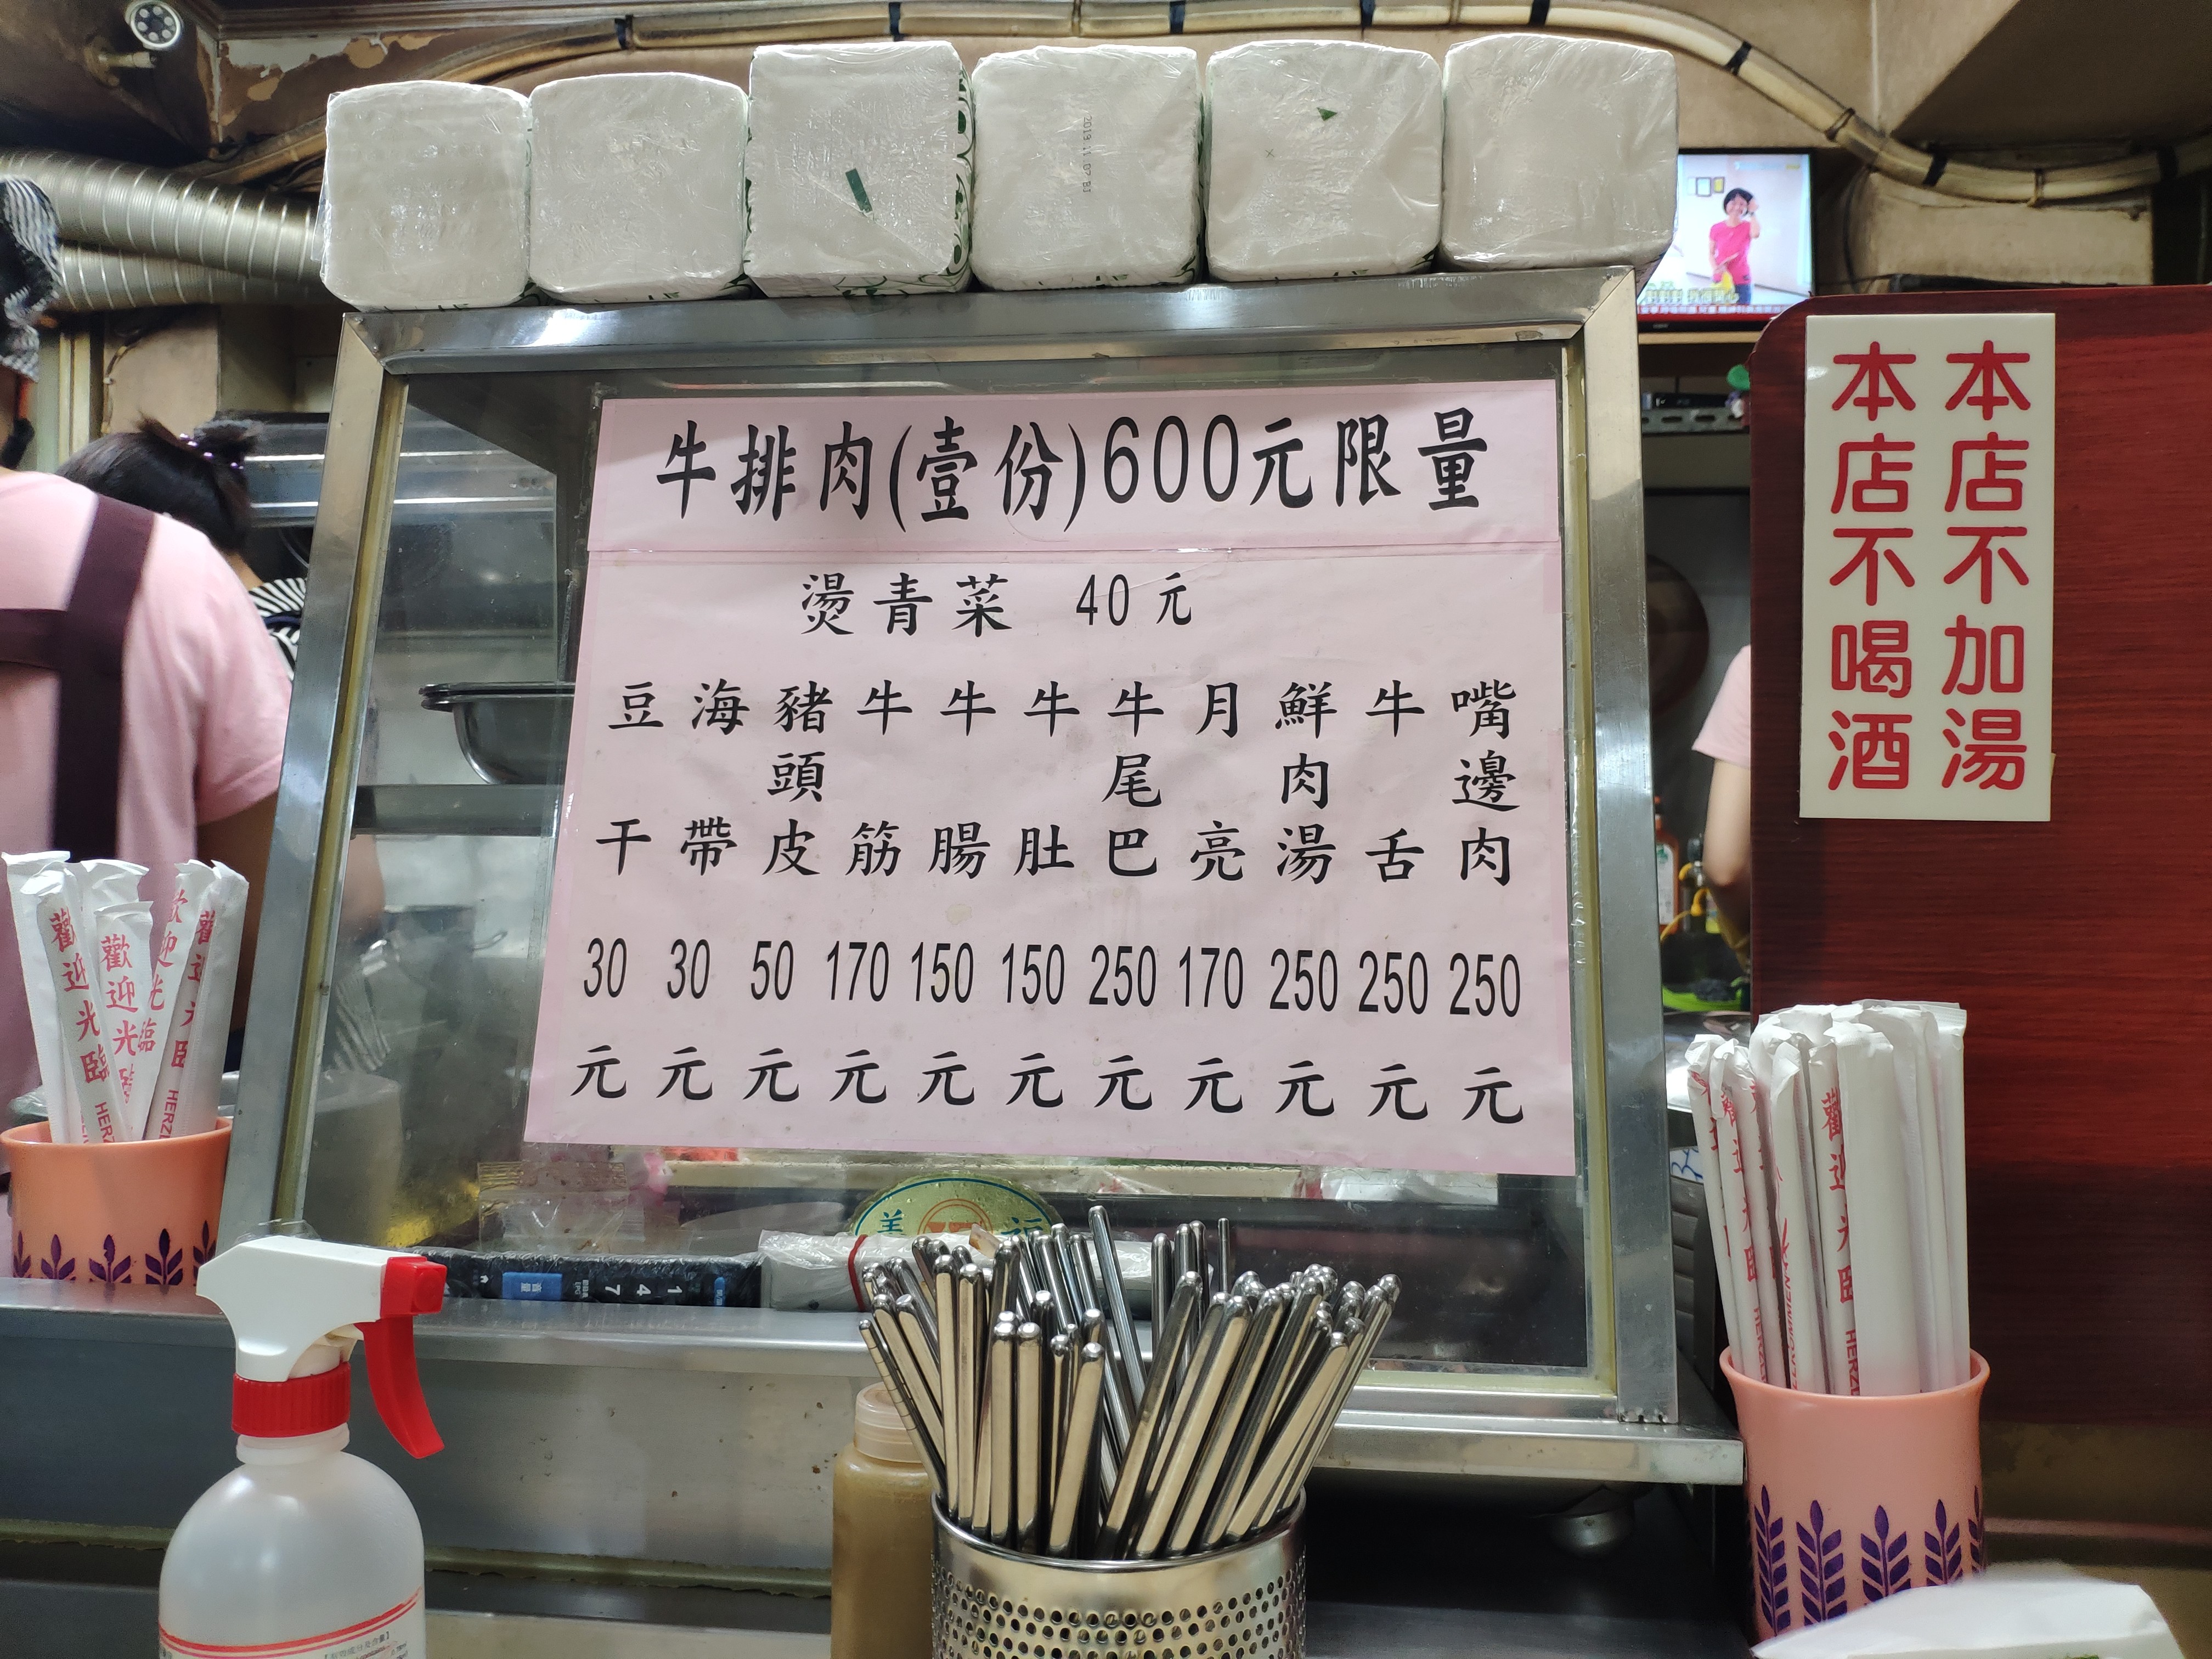 牛排肉(壹份)600元限量
燙青菜 40元
嘴邊肉 250元
牛舌 250元
鮮肉湯 250元
月亮 170元
牛尾巴 250元
牛肚 150元
牛腸 150元
牛筋 170元
豬頭皮 50元
海帶 30元
豆干 30元
本店不加湯
本店不喝酒
歡迎光臨
歡迎光臨